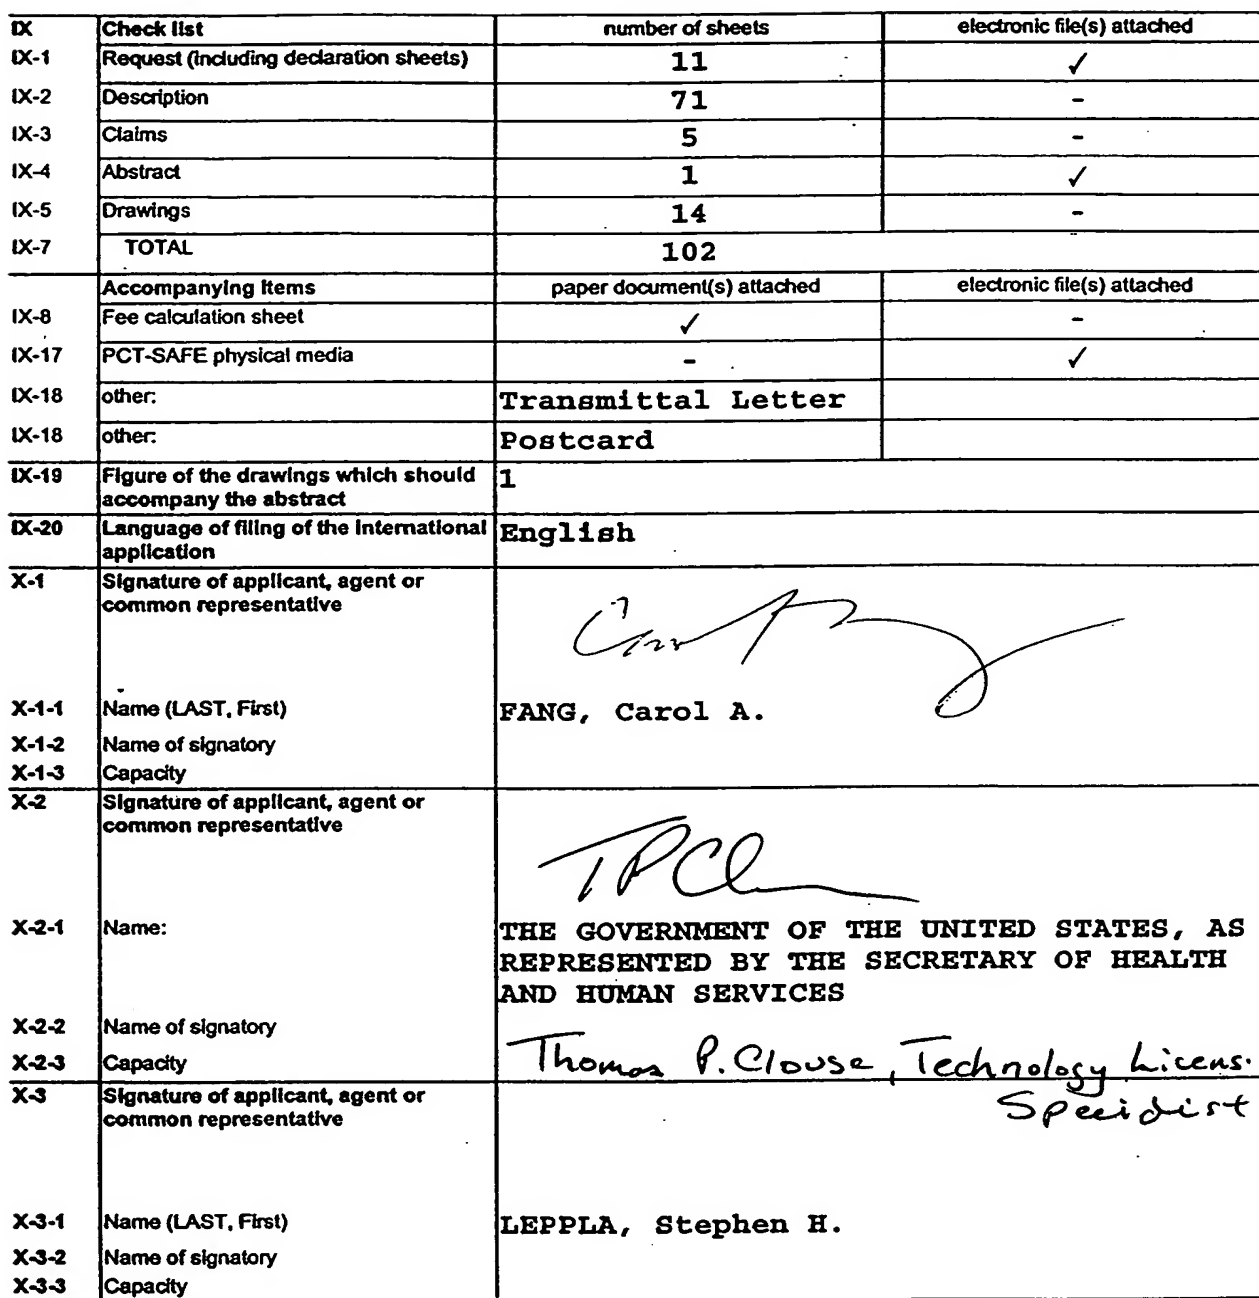 IX Check list number of sheets electronic file(s) attached
IX-1 Request (including declaration sheets) 11 ✓
IX-2 Description 71 -
IX-3 Claims 5 -
IX-4 Abstract 1 ✓
IX-5 Drawings 14 -
IX-7 TOTAL 102
Accompanying Items paper document(s) attached electronic file(s) attached
IX-8 Fee calculation sheet ✓ -
IX-17 PCT-SAFE physical media - ✓
IX-18 other: Transmittal Letter
IX-18 other: Postcard
IX-19 Figure of the drawings which should 1
accompany the abstract
IX-20 Language of filing of the international English
application
X-1 Signature of applicant, agent or
common representative
X-1-1 Name (LAST, First) FANG, Carol A.
X-1-2 Name of signatory
X-1-3 Capacity
X-2 Signature of applicant, agent or
common representative
TPCl
X-2-1 Name: THE GOVERNMENT OF THE UNITED STATES, AS
REPRESENTED BY THE SECRETARY OF HEALTH
AND HUMAN SERVICES
X-2-2 Name of signatory
X-2-3 Capacity Thomas P. Clouse, Technology Licens.
Specialist
X-3 Signature of applicant, agent or
common representative
X-3-1 Name (LAST, First) LEPPLA, Stephen H.
X-3-2 Name of signatory
X-3-3 Capacity